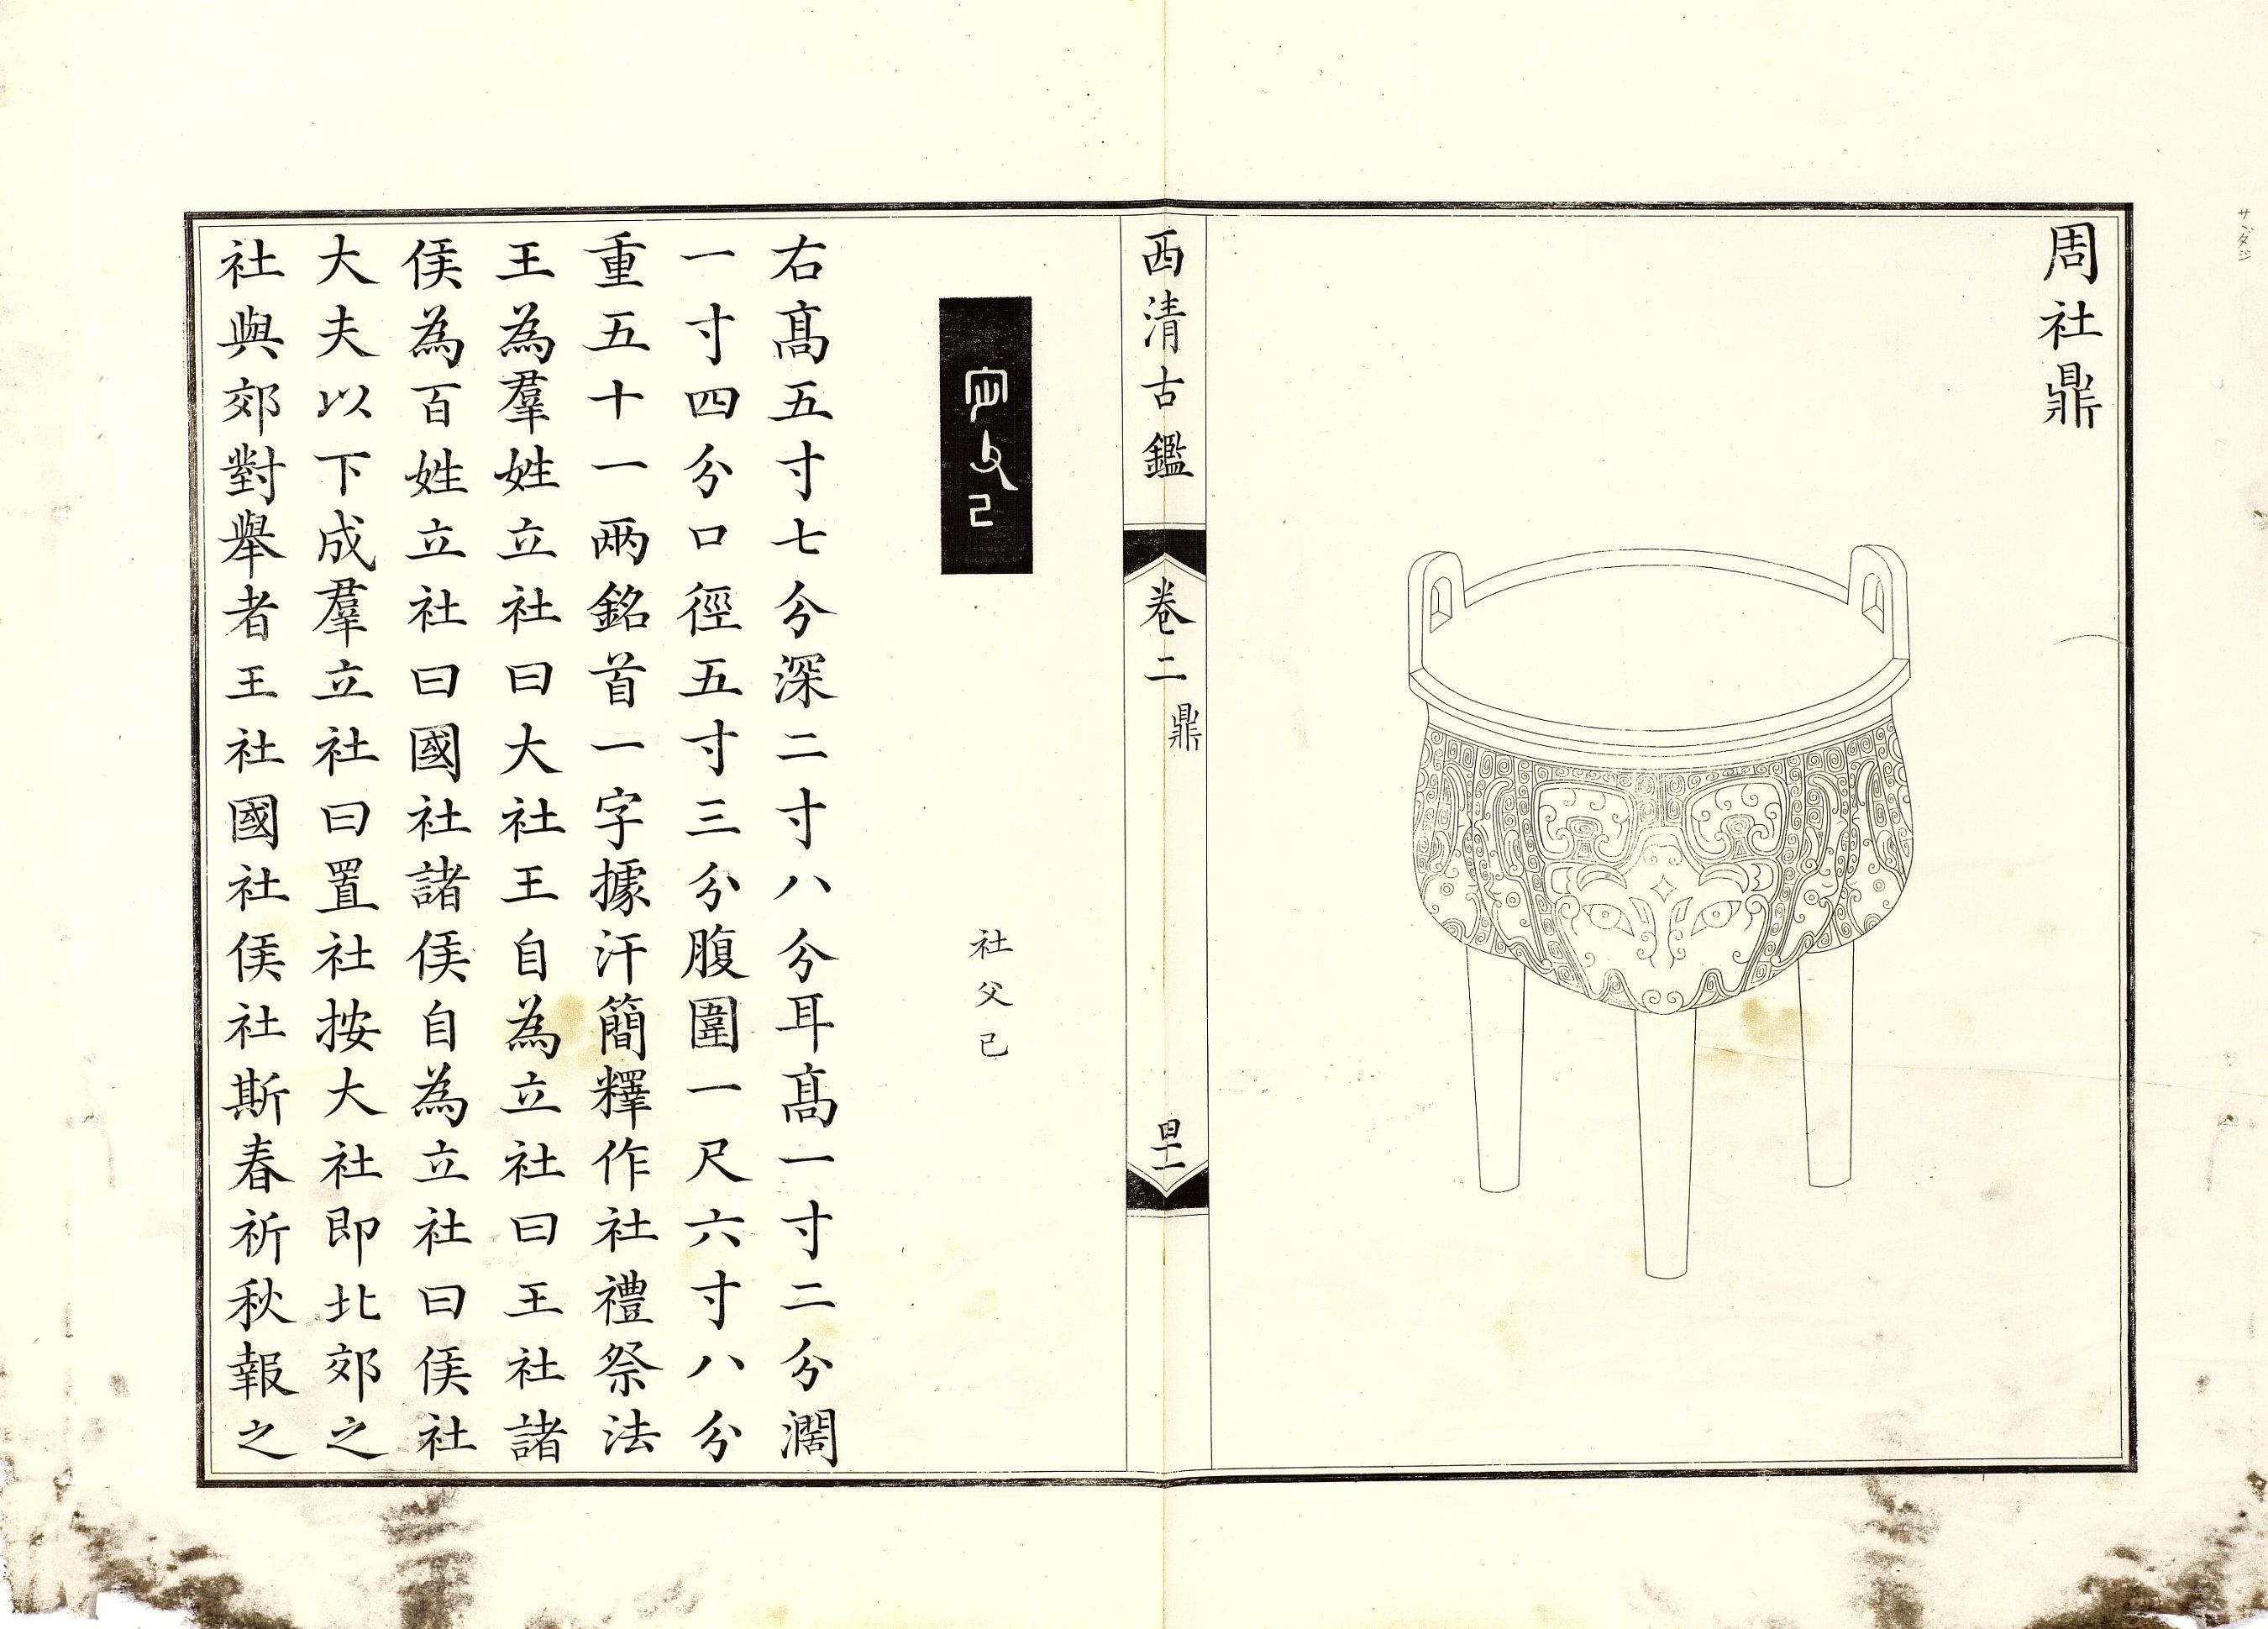 周社鼎
西清古鑑
卷二
鼎
社父己
右髙五寸七分深二寸八分耳髙一寸二分濶
一寸四分口徑五寸三分腹圍一尺六寸八分
重五十一兩銘首一字據汗簡釋作社禮祭法
王為羣姓立社曰大社王自為立社曰王社諸
侯為百姓立社曰國社諸侯自為立社曰侯社
大夫以下成羣立社曰置社按大社即北郊之
社與郊對舉者王社國社侯社斯春祈秋報之